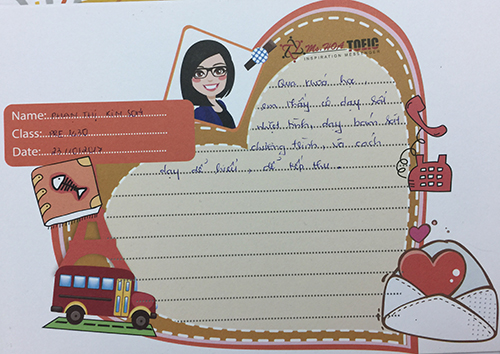 Ms HOA TOEIC
INSPIRATION MESSENGER
Name: PHAN THỊ KIM
Class: PRE
Date:
Qua khoá học
em thấy cô dạy rất
nhiệt tình, dạy bám sát
chương trình, và cách
dạy dễ hiểu, dễ tiếp thu.